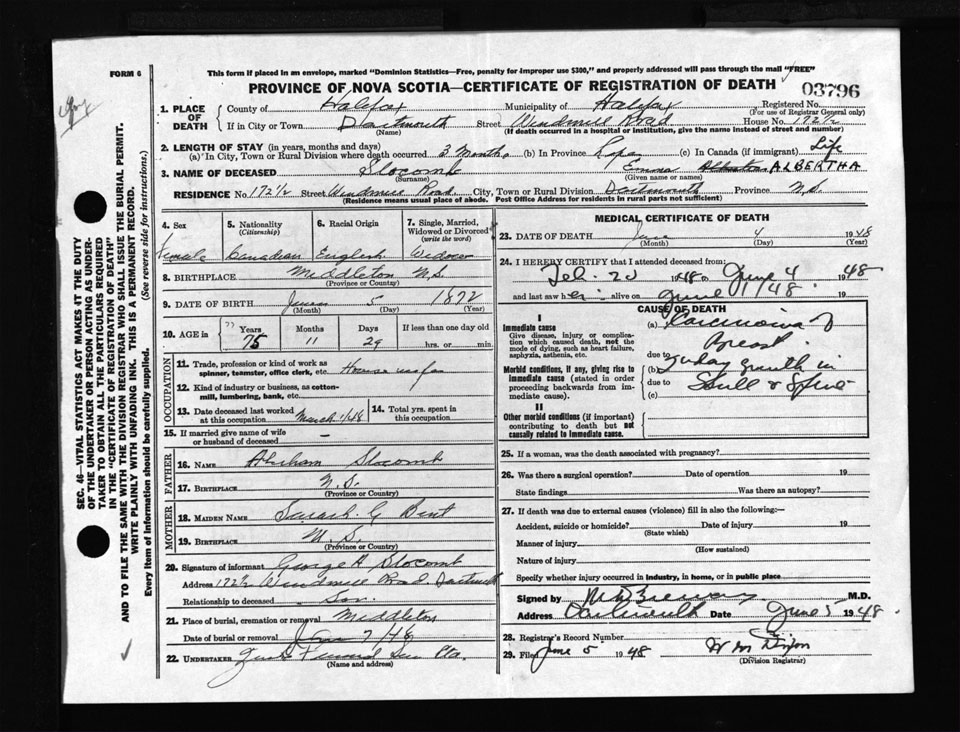 FORM 6
This form if placed in an envelope, marked "Dominion Statistics—Free, penalty for improper use $300," and properly addressed will pass through the mail "FREE"
PROVINCE OF NOVA SCOTIA—CERTIFICATE OF REGISTRATION OF DEATH
03796
1. PLACE OF DEATH
County of Halifax Municipality of Halifax Registered No.
(For use of Registrar General only)
If in City or Town Dartmouth Street Windmill Road House No. 172 1/2
(Name) (If death occurred in a hospital or institution, give the name instead of street and number)
2. LENGTH OF STAY (in years, months and days)
(a) In City, Town or Rural Division where death occurred 3 Months (b) In Province Life (c) In Canada (if immigrant) Life
3. NAME OF DECEASED Slocomb Emma ALBERTHA
(Surname) (Given names)
RESIDENCE No. 172 1/2 Street Windmill Road City, Town or Rural Division Dartmouth Province N.S.
(Residence means usual place of abode. Post Office Address for residents in rural parts not sufficient)
4. Sex 5. Nationality (Citizenship) 6. Racial Origin 7. Single, Married, Widowed or Divorced (write the word)
Female Canadian English Widow
8. BIRTHPLACE Middleton N.S.
(Province or Country)
9. DATE OF BIRTH 5 1872
(Month) (Day) (Year)
10. AGE in Years Months Days If less than one day old
75 11 29 hrs. or min.
OCCUPATION
11. Trade, profession or kind of work as spinner, teamster, office clerk, etc. Housewife
12. Kind of industry or business, as cotton-mill, lumbering, bank, etc.
13. Date deceased last worked at this occupation March 1/48 14. Total yrs. spent in this occupation
15. If married give name of wife or husband of deceased —
FATHER
16. NAME Abraham Slocomb
17. BIRTHPLACE N.S.
(Province or Country)
MOTHER
18. MAIDEN NAME Sarah G Bent
19. BIRTHPLACE N.S.
(Province or Country)
20. Signature of informant George H Slocomb
Address 172 1/2 Windmill Road Dartmouth
Relationship to deceased Son
21. Place of burial, cremation or removal Middleton
Date of burial or removal June 7/48
22. UNDERTAKER
(Name and address)
MEDICAL CERTIFICATE OF DEATH
23. DATE OF DEATH June 4 1948
(Month) (Day) (Year)
24. I HEREBY CERTIFY that I attended deceased from:
Feb. 20 1948 to June 4 1948
and last saw her alive on June 1/48 19
CAUSE OF DEATH
I
Immediate cause
Give disease, injury or complication which caused death, not the mode of dying, such as heart failure, asphyxia, asthenia, etc.
(a) Carcinoma of Breast
due to
Morbid conditions, if any, giving rise to immediate cause (stated in order proceeding backwards from immediate cause).
(b) 2ndary growth in
due to Skull & Spine
(c)
II
Other morbid conditions (if important) contributing to death but not causally related to immediate cause.
25. If a woman, was the death associated with pregnancy?
26. Was there a surgical operation? Date of operation 19
State findings Was there an autopsy?
27. If death was due to external causes (violence) fill in also the following:—
Accident, suicide or homicide? Date of injury 19
(State which)
Manner of injury
(How sustained)
Nature of injury
Specify whether injury occurred in industry, in home, or in public place
Signed by M.D.
Address Dartmouth Date June 5 1948.
28. Registrar's Record Number
29. Filed June 5 1948 W M Dixon
(Division Registrar)
SEC. 46—VITAL STATISTICS ACT MAKES IT THE DUTY
OF THE UNDERTAKER OR PERSON ACTING AS UNDER-
TAKER TO OBTAIN ALL THE PARTICULARS REQUIRED
IN THE "CERTIFICATE OF REGISTRATION OF DEATH"
AND TO FILE THE SAME WITH THE DIVISION REGISTRAR WHO SHALL ISSUE THE BURIAL PERMIT.
WRITE PLAINLY WITH UNFADING INK. THIS IS A PERMANENT RECORD.
Every item of Information should be carefully supplied. (See reverse side for instructions.)